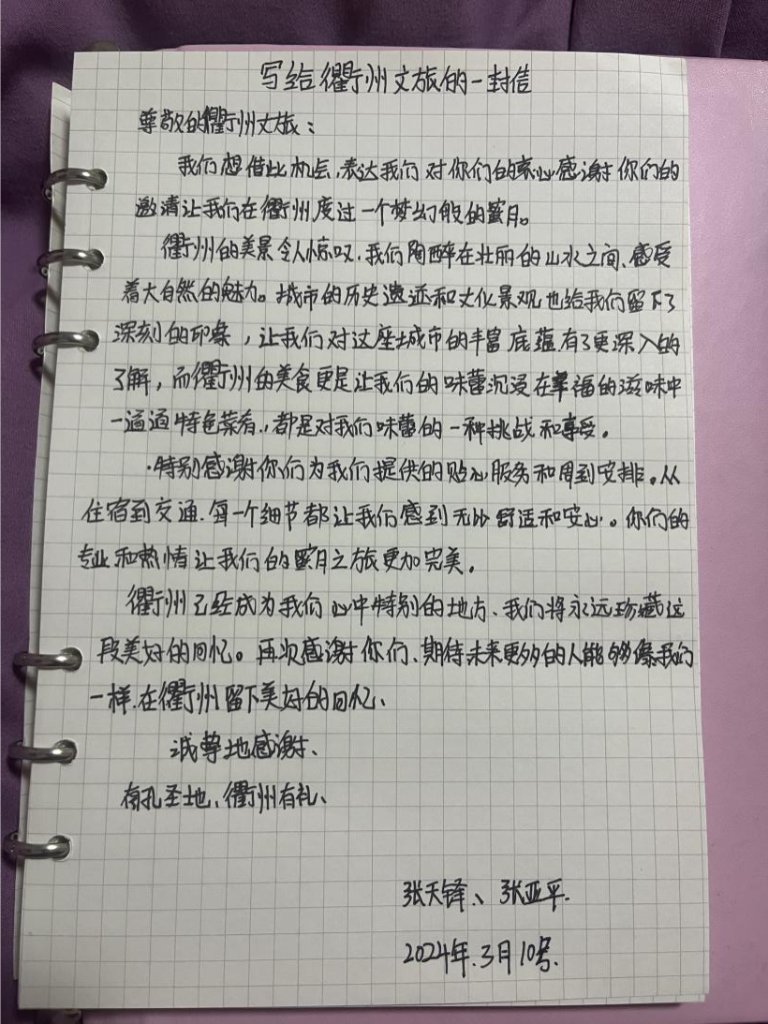 写给衢州文旅的一封信
尊敬的衢州文旅:
我们想借此机会,表达我们对你们的衷心感谢你们的
邀请让我们在衢州度过一个梦幻般的蜜月。
衢州的美景令人惊叹,我们陶醉在壮丽的山水之间、感受
着大自然的魅力。城市的历史遗迹和文化景观也给我们留下了
深刻的印象,让我们对这座城市的丰富底蕴有了更深入的
了解,而衢州的美食更是让我们的味蕾沉浸在幸福的滋味中
一道道特色菜肴,都是对我们味蕾的一种挑战和享受。
·特别感谢你们为我们提供的贴心服务和周到安排。从
住宿到交通.每一个细节都让我们感到无比舒适和安心。你们的
专业和热情让我们的蜜月之旅更加完美。
衢州已经成为我们心中特别的地方、我们将永远珍藏这
段美好的回忆。再次感谢你们、期待未来更多的人能够像我们
一样.在衢州留下美好的回忆、
诚挚地感谢、
南孔圣地、衢州有礼、
张天铎、张亚平.
2024年.3月10号.